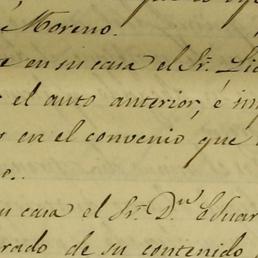 Moreno.
en su casa el Sr. Li
el auto anterior, é
en el convenio que
casa el Sr. Dn. Eduar
rado de su contenido